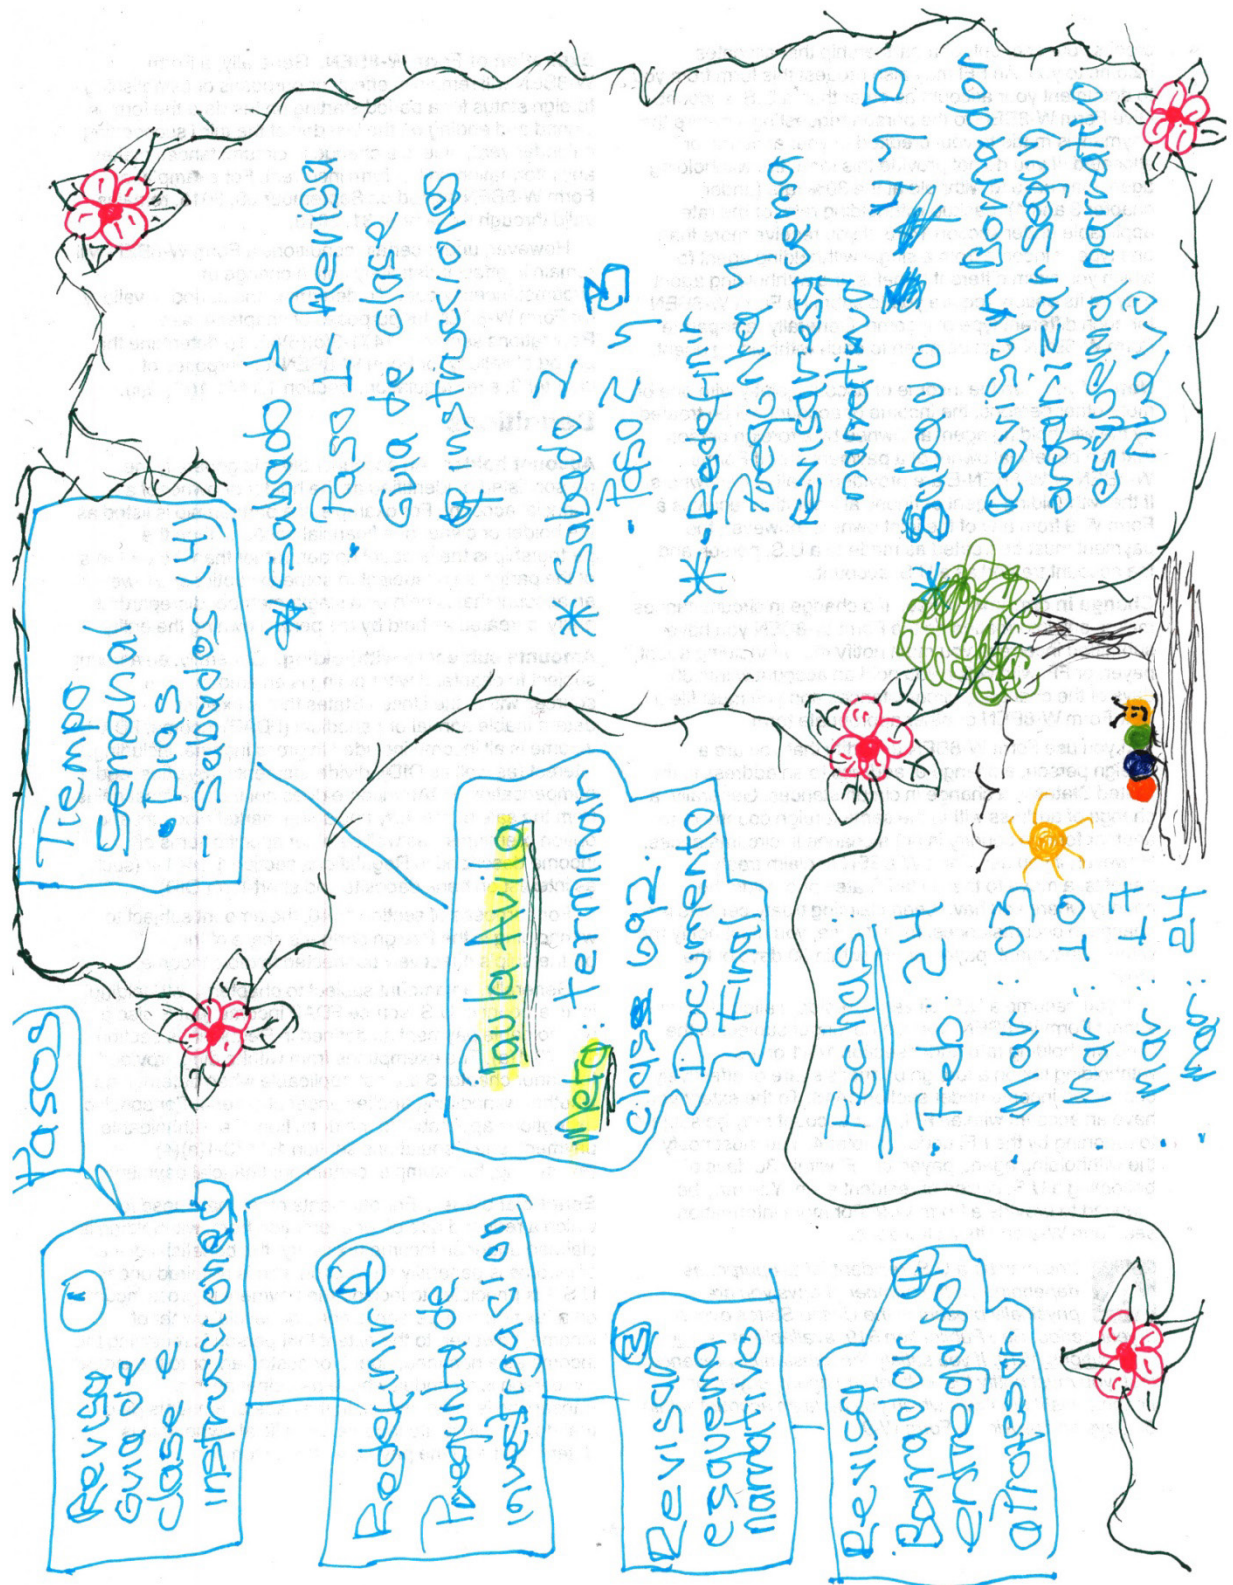 Pasos
Revisa ①
Guia de
clase e
instrucciones
Redefinir ②
Pregunta de
investigasion
Revisar ③
esquema
narrativo
Revisa
Borrador ④
entregado
afropesir
Paula Avila
Metra: terminar
clase 692.
Documento
Final
Tiempo
Semanal
• Dias
- Sabados (4)
Fechas
• Feb 24
• Mar: 03
• Mar: 10
• Mar: 17
• Mar: 24
* Sabado 1
• Paso 1- Revisa
Guia de clase
e instrucciones
* Sabado 2
- Paso 2 y 3
* Redefinir
Pregunta
revisares quema
narrativo
* Sabado 4 y 5
Revisar Borrador
y organizar segun
esquema narrativo
nueva